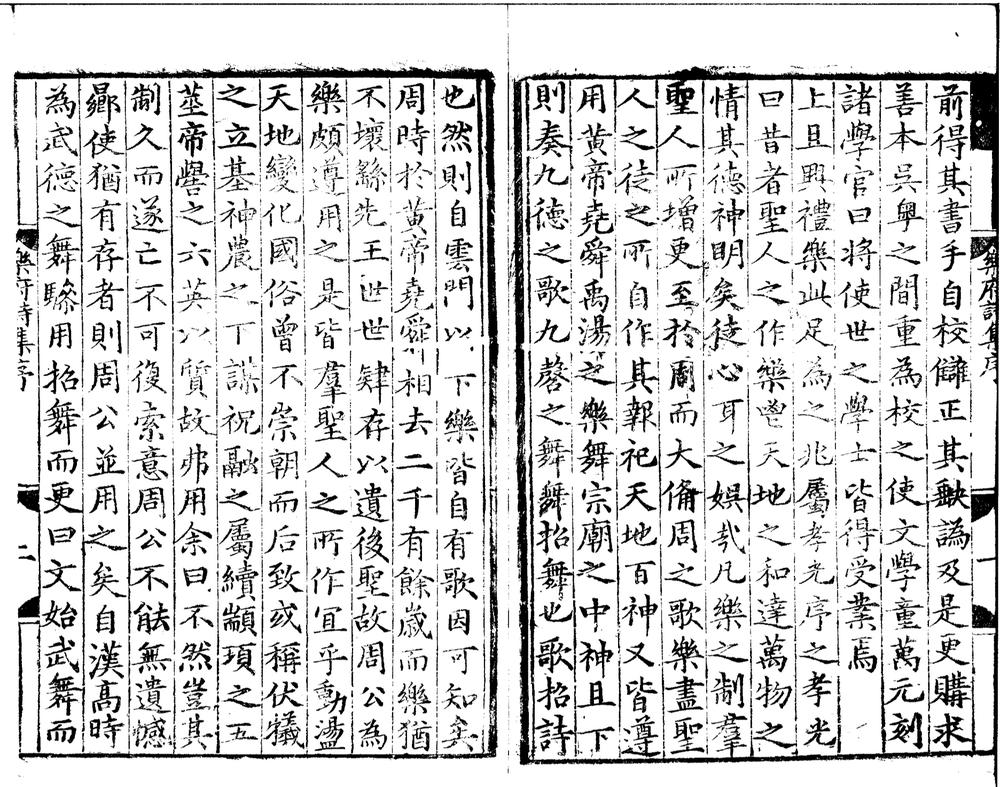 樂府詩集序
一
前得其書手自校讎正其缺譌及是更購求
善本吳粵之間重為校之使文學童萬元刻
諸學官曰將使世之學士皆得受業焉
上且興禮樂此足為之兆屬孝光序之孝光
曰昔者聖人之作樂也天地之和達萬物之
情其德神明矣徒心耳之娛哉凡樂之制羣
聖人所增更至於周而大俻周之歌樂盡聖
人之徒之所自作其報祀天地百神又皆遵
用黃帝堯舜禹湯之樂舞宗廟之中神且下
則奏九德之歌九磬之舞舞招舞也歌招詩
也然則自雲門以下樂皆自有歌因可知矣
周時於黃帝堯舜相去二千有餘嵗而樂猶
不壞繇先王世世肄存以遺後聖故周公為
樂頗遵用之是皆羣聖人之所作宜乎動盪
天地變化國俗曾不崇朝而后致或稱伏犧
之立基神農之下謀祝融之屬續顓頊之五
莖帝嚳之六英以質故弗用余曰不然豈其
制久而遂亡不可復索意周公不能無遺憾
鄉使猶有存者則周公並用之矣自漢高時
為武德之舞驂用招舞而更曰文始武舞而
樂府詩集序
二